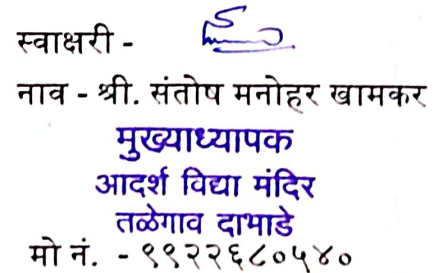 स्वाक्षरी -
नाव - श्री. संतोष मनोहर खामकर
मुख्याध्यापक
आदर्श विद्या मंदिर
तळेगाव दाभाडे
मो नं. - ९९२२६८०५४०